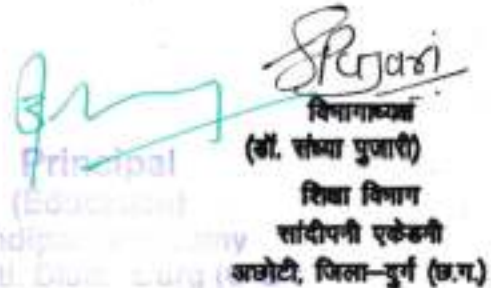 SPujari
विभागाध्यक्ष
(डॉ. संध्या पुजारी)
शिक्षा विभाग
सांदीपनी एकेडमी
अछोटी, जिला-दुर्ग (छ.ग.)
Principal
(Education)